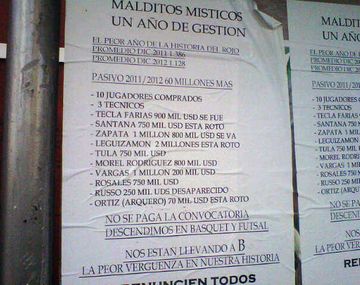 MALDITOS MISTICOS
UN AÑO DE GESTION
EL PEOR AÑO DE LA HISTORIA DEL ROJO
PROMEDIO DIC 2011 1.386
PROMEDIO DIC 2012 1.128
PASIVO 2011/ 2012 60 MILLONES MAS
- 10 JUGADORES COMPRADOS
- 3 TECNICOS
- TECLA FARIAS 900 MIL USD SE FUE
- SANTANA 750 MIL USD ESTA ROTO
- ZAPATA 1 MILLON 800 MIL USD SE VA
- LEGUIZAMON 2 MILLONES ESTA ROTO
- TULA 750 MIL USD
- MOREL RODRIGUEZ 800 MIL USD
- VARGAS 1 MILLON 200 MIL USD
- ROSALES 750 MIL USD
- RUSSO 250 MIL UDS DESAPARECIDO
- ORTIZ (ARQUERO) 70 MIL USD ESTA ROTO
NO SE PAGA LA CONVOCATORIA
DESCENDIMOS EN BASQUET Y FUTSAL
NOS ESTAN LLEVANDO A B
LA PEOR VERGUENZA EN NUESTRA HISTORIA
RENUNCIEN TODOS
MALDI
UN AÑ
EL PEOR AÑO DE
PROMEDIO DIC 201
PROMEDIO DIC 201
PASIVO 2011/
- 10 JUGADO
- 3 TECNICO
- TECLA FAR
- SANTANA
- ZAPATA
- LEGUIZA
- TULA 750
- MOREL R
- VARGAS
- ROSALES
- RUSSO 250
- ORTIZ (AR
NO S
DESCEN
NOS
LA PEOR
REN